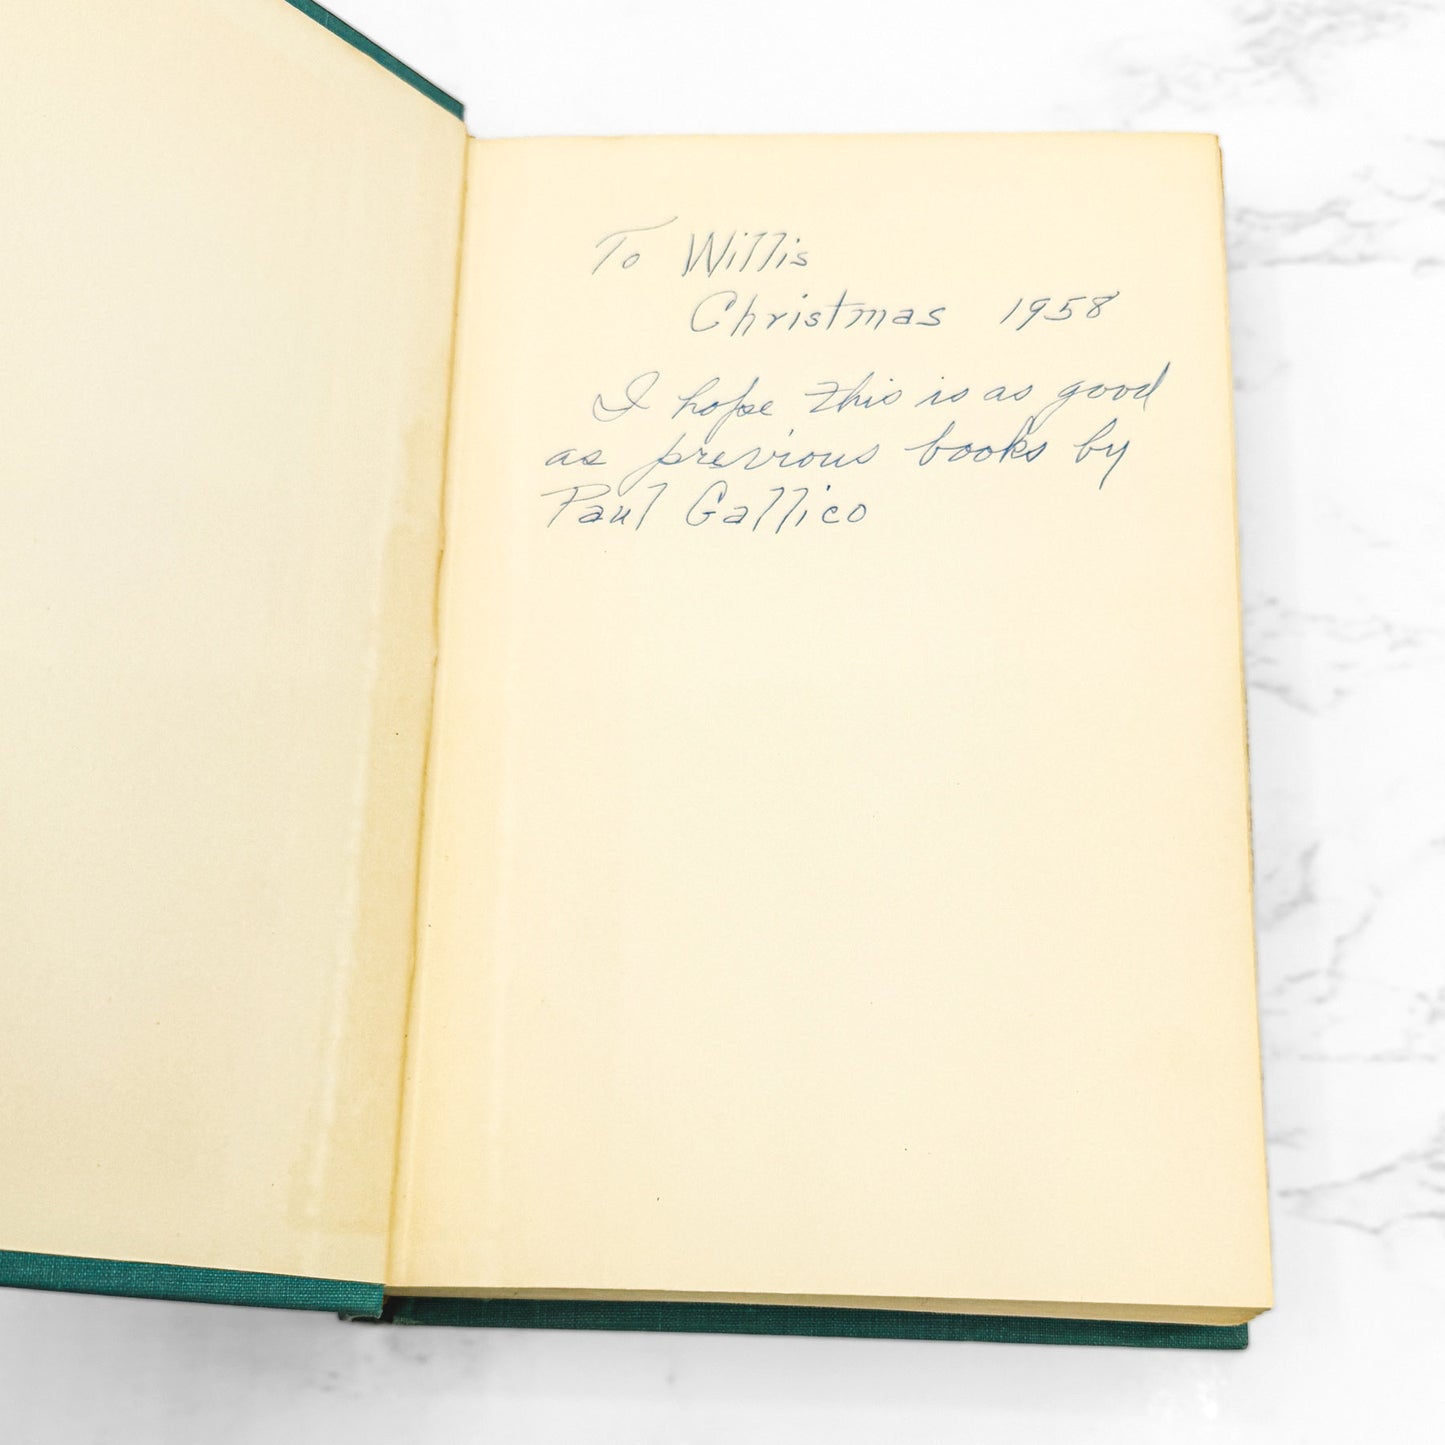 To Willis
Christmas 1958
I hope this is as good
as previous books by
Paul Gallico